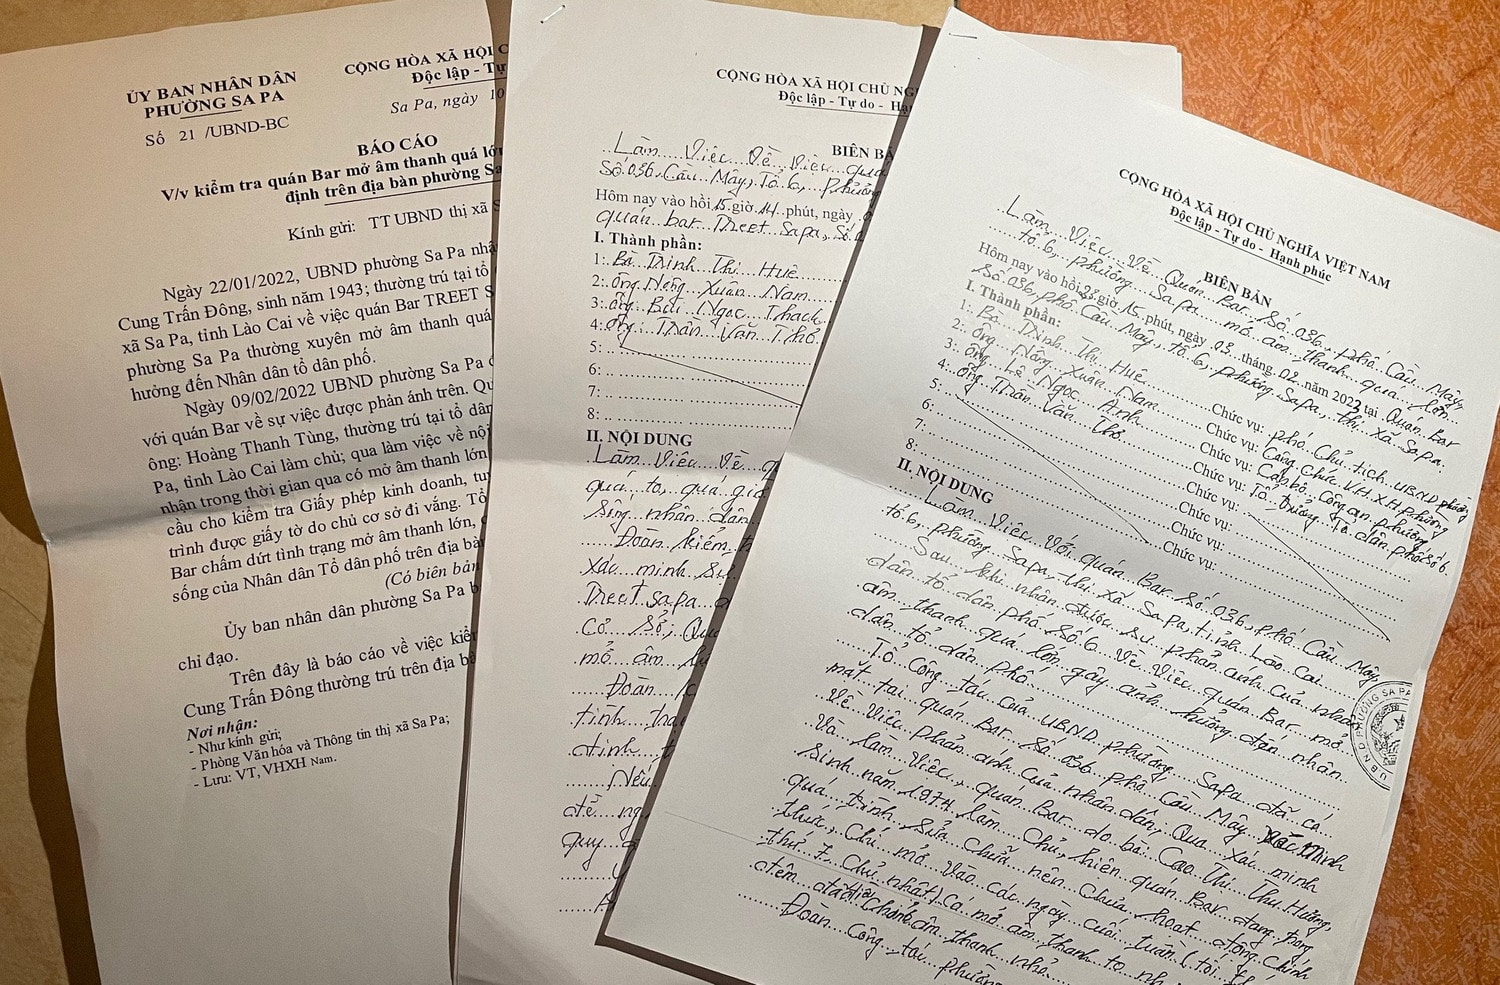 ỦY BAN NHÂN DÂN
PHƯỜNG SA PA
Số 21 /UBND-BC
CỘNG HÒA XÃ HỘI C
Độc lập - Tự
Sa Pa, ngày 10
BÁO CÁO
V/v kiểm tra quán Bar mở âm thanh quá lớ
định trên địa bàn phường Sa
Kính gửi: TT UBND thị xã S
Ngày 22/01/2022, UBND phường Sa Pa nhậ
Cung Trấn Đông, sinh năm 1943; thường trú tại tổ
xã Sa Pa, tỉnh Lào Cai về việc quán Bar TREET S
phường Sa Pa thường xuyên mở âm thanh quá
hưởng đến Nhân dân tổ dân phố.
Ngày 09/02/2022 UBND phường Sa Pa
với quán Bar về sự việc được phản ánh trên. Qu
ông: Hoàng Thanh Tùng, thường trú tại tổ dân
Pa, tỉnh Lào Cai làm chủ; qua làm việc về nội
nhận trong thời gian qua có mở âm thanh lớn
cầu cho kiểm tra Giấy phép kinh doanh, tu
trình được giấy tờ do chủ cơ sở đi vắng. Tổ
Bar chấm dứt tình trạng mở âm thanh lớn,
sống của Nhân dân Tổ dân phố trên địa bàn
(Có biên bản
Ủy ban nhân dân phường Sa Pa b
chỉ đạo.
Trên đây là báo cáo về việc kiể
Cung Trấn Đông thường trú trên địa bà
Nơi nhận:
- Như kính gửi;
- Phòng Văn hóa và Thông tin thị xã Sa Pa;
- Lưu: VT, VHXH Nam.
CỘNG HÒA XÃ HỘI CHỦ NG
Độc lập - Tự do - Hạnh
BIÊN BẢ
Làm Việc Về Việc quá
Số 036, Cầu Mây, Tổ 6, phường
Hôm nay vào hồi 15 giờ 14 phút, ngày
quán bar Treet Sapa, Số
I. Thành phần:
1: Bà Trinh Thi Huê
2: Ông Nông Xuân Nam
3: Ông Bùi Ngọc Thach
4: Ông Trần Văn Thỏ
5:
6:
7:
8:
II. NỘI DUNG
Làm Việc Về q
quá to, quá giờ
Sing nhân dân
Đoàn kiểm t
xác minh Sự
Treet sapa
Cơ Sở; Qua
mở âm
Đoàn
tình trạ
Nếu
để ng
quy
CỘNG HÒA XÃ HỘI CHỦ NGHĨA VIỆT NAM
Độc lập - Tự do - Hạnh phúc
BIÊN BẢN
Làm Việc Về Quán Bar Số 036 phố Cầu Mây,
tổ 6, phường Sapa mở âm thanh quá lớn.
Hôm nay vào hồi 23 giờ 15 phút, ngày 03 tháng 02 năm 2022 tại Quán Bar
Số 036, phố Cầu Mây, tổ 6, phường Sapa, thị xã Sapa.
I. Thành phần:
1: Bà Trinh Thi Huê Chức vụ: phó Chủ tịch UBND phường
2: Ông Nông Xuân Nam Chức vụ: Công Chức VH-XH phường
3: Ông Lê Ngọc Anh Chức vụ: Cán bộ Công an phường
4: Ông Trần Văn Thỏ Chức vụ: Tổ Trưởng Tổ dân phố số 6
5: Chức vụ:
6: Chức vụ:
7: Chức vụ:
8: Chức vụ:
II. NỘI DUNG
Làm Việc Với quán Bar Số 036, phố Cầu Mây,
tổ 6, phường Sapa, thị xã Sapa, tỉnh Lào Cai
Sau khi nhận được sự phản ánh của nhân
dân tổ dân phố Số 6 Về Việc quán Bar mở
âm thanh quá lớn gây ảnh hưởng đến nhân
dân tổ dân phố.
Tổ Công tác của UBND phường Sapa đã có
mặt tại quán Bar Số 036 phố Cầu Mây xác minh
Về Việc phản ánh của nhân dân, Qua xác minh
Và làm Việc, quán Bar do bà Cao Thị Thu Hương,
Sinh năm 1974 làm Chủ, hiện quán Bar đang trong
quá trình sửa chữa nên chưa hoạt động Chính
thức, Chỉ mở vào các ngày cuối tuần (tối thứ
thứ 7, Chủ nhật) Có mở âm thanh to
âm thanh nhỏ
Đoàn Công tác phường
U B N D PHƯỜNG SA PA